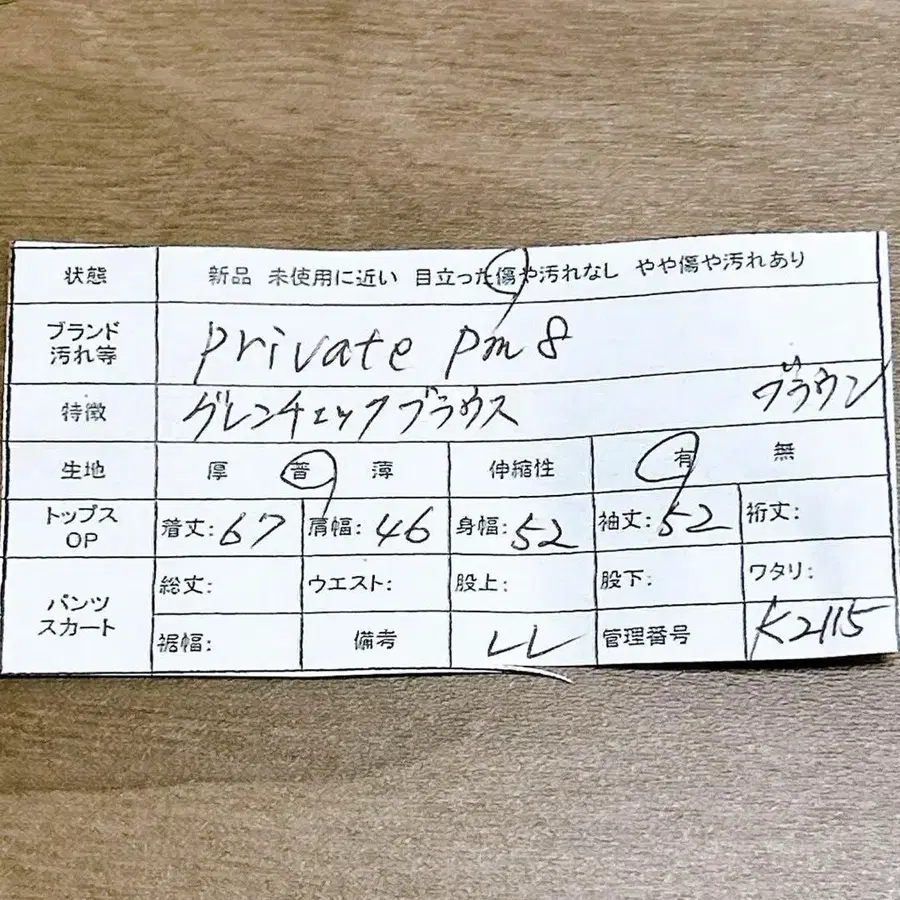 状態 新品 未使用に近い 目立った傷や汚れなし やや傷や汚れあり
ブランド
汚れ等 private pm 8
特徴 グレンチェックブラウス ブラウン
生地 厚 普 薄 伸縮性 有 無
トップス
OP 着丈:67 肩幅:46 身幅:52 袖丈:52 裄丈:
パンツ
スカート 総丈: ウエスト: 股上: 股下: ワタリ:
裾幅: 備考 LL 管理番号 K2115